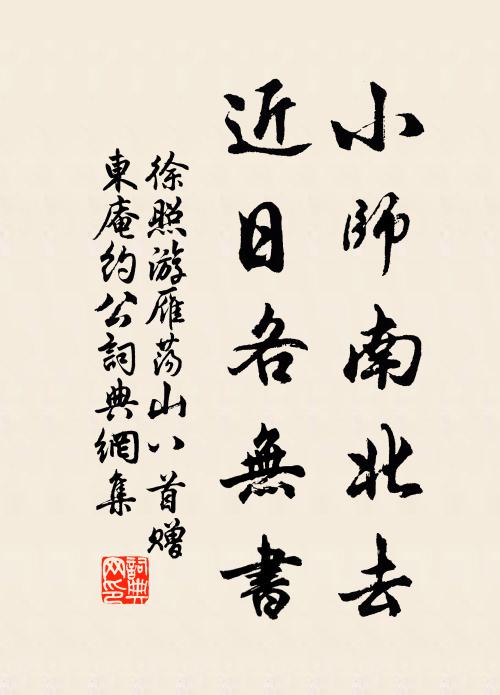 小師南北去
近日各無書
徐照游雁荡山八首赠
東庵約公詞典網集
詞典网印